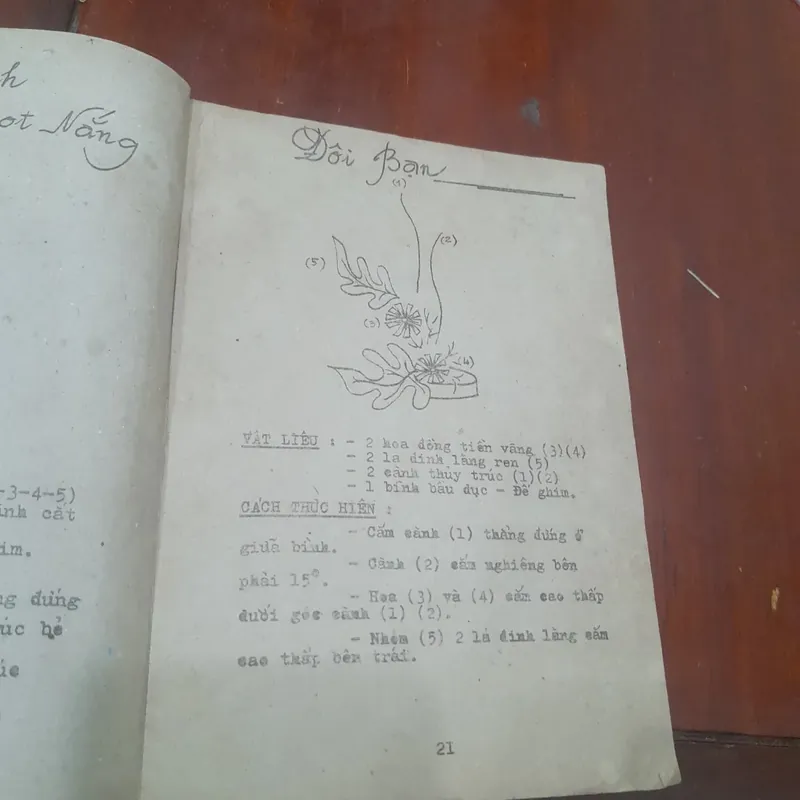 h
ot Nắng
-3-4-5)
ình cắt
im.
ng đứng
úc bẻ
úc
Đôi Bạn
(1)
(2)
(5)
(3)
(4)
VẬT LIỆU : - 2 hoa đồng tiền vàng (3)(4)
- 2 lá đinh lăng ren (5)
- 2 cành thủy trúc (1)(2)
- 1 bình bầu dục - Đế ghim.
CÁCH THỰC HIỆN :
- Cắm cành (1) thẳng đứng ở
giữa bình.
- Cành (2) cắm nghiêng bên
phải 15°.
- Hoa (3) và (4) cắm cao thấp
dưới gốc cành (1) (2).
- Nhóm (5) 2 lá đinh lăng cắm
cao thấp bên trái.
21